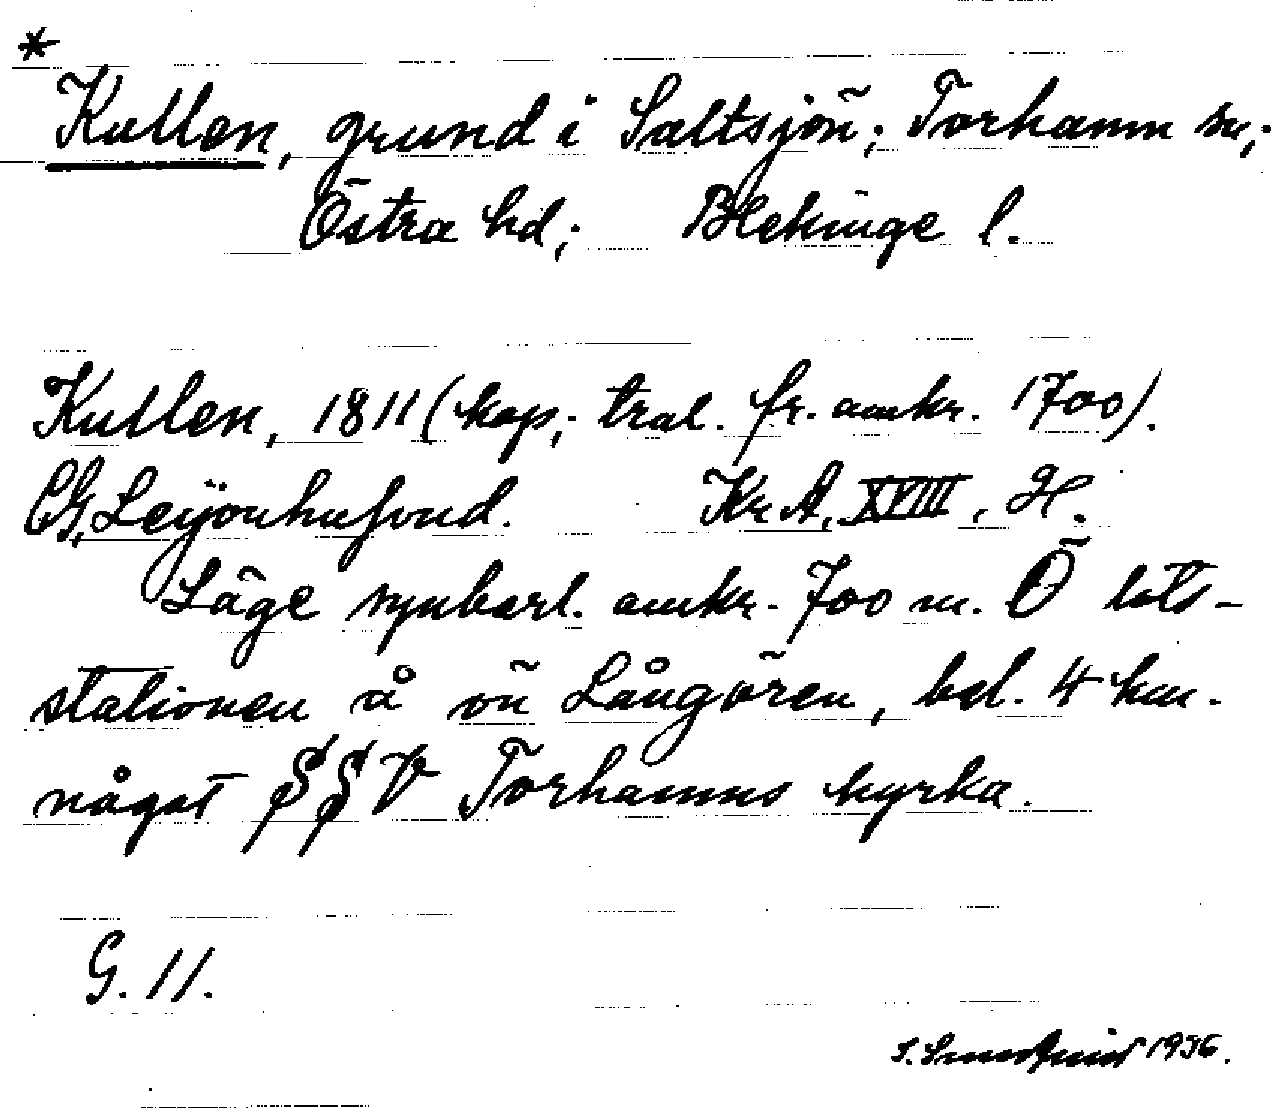 *
Kullen, grund i Saltsjön; Torhamn sn;
Östra hd; Blekinge l.
Kullen, 1811 (kop; tral. fr. omkr. 1700).
CG, Leijonhufvud. Kr A, XVIII, H.
Läge synbarl. omkr. 700 m. Ö lots-
stationen å ön Långören, bel. 4 km.
något SSV Torhamns kyrka.
G. 11.
1956.